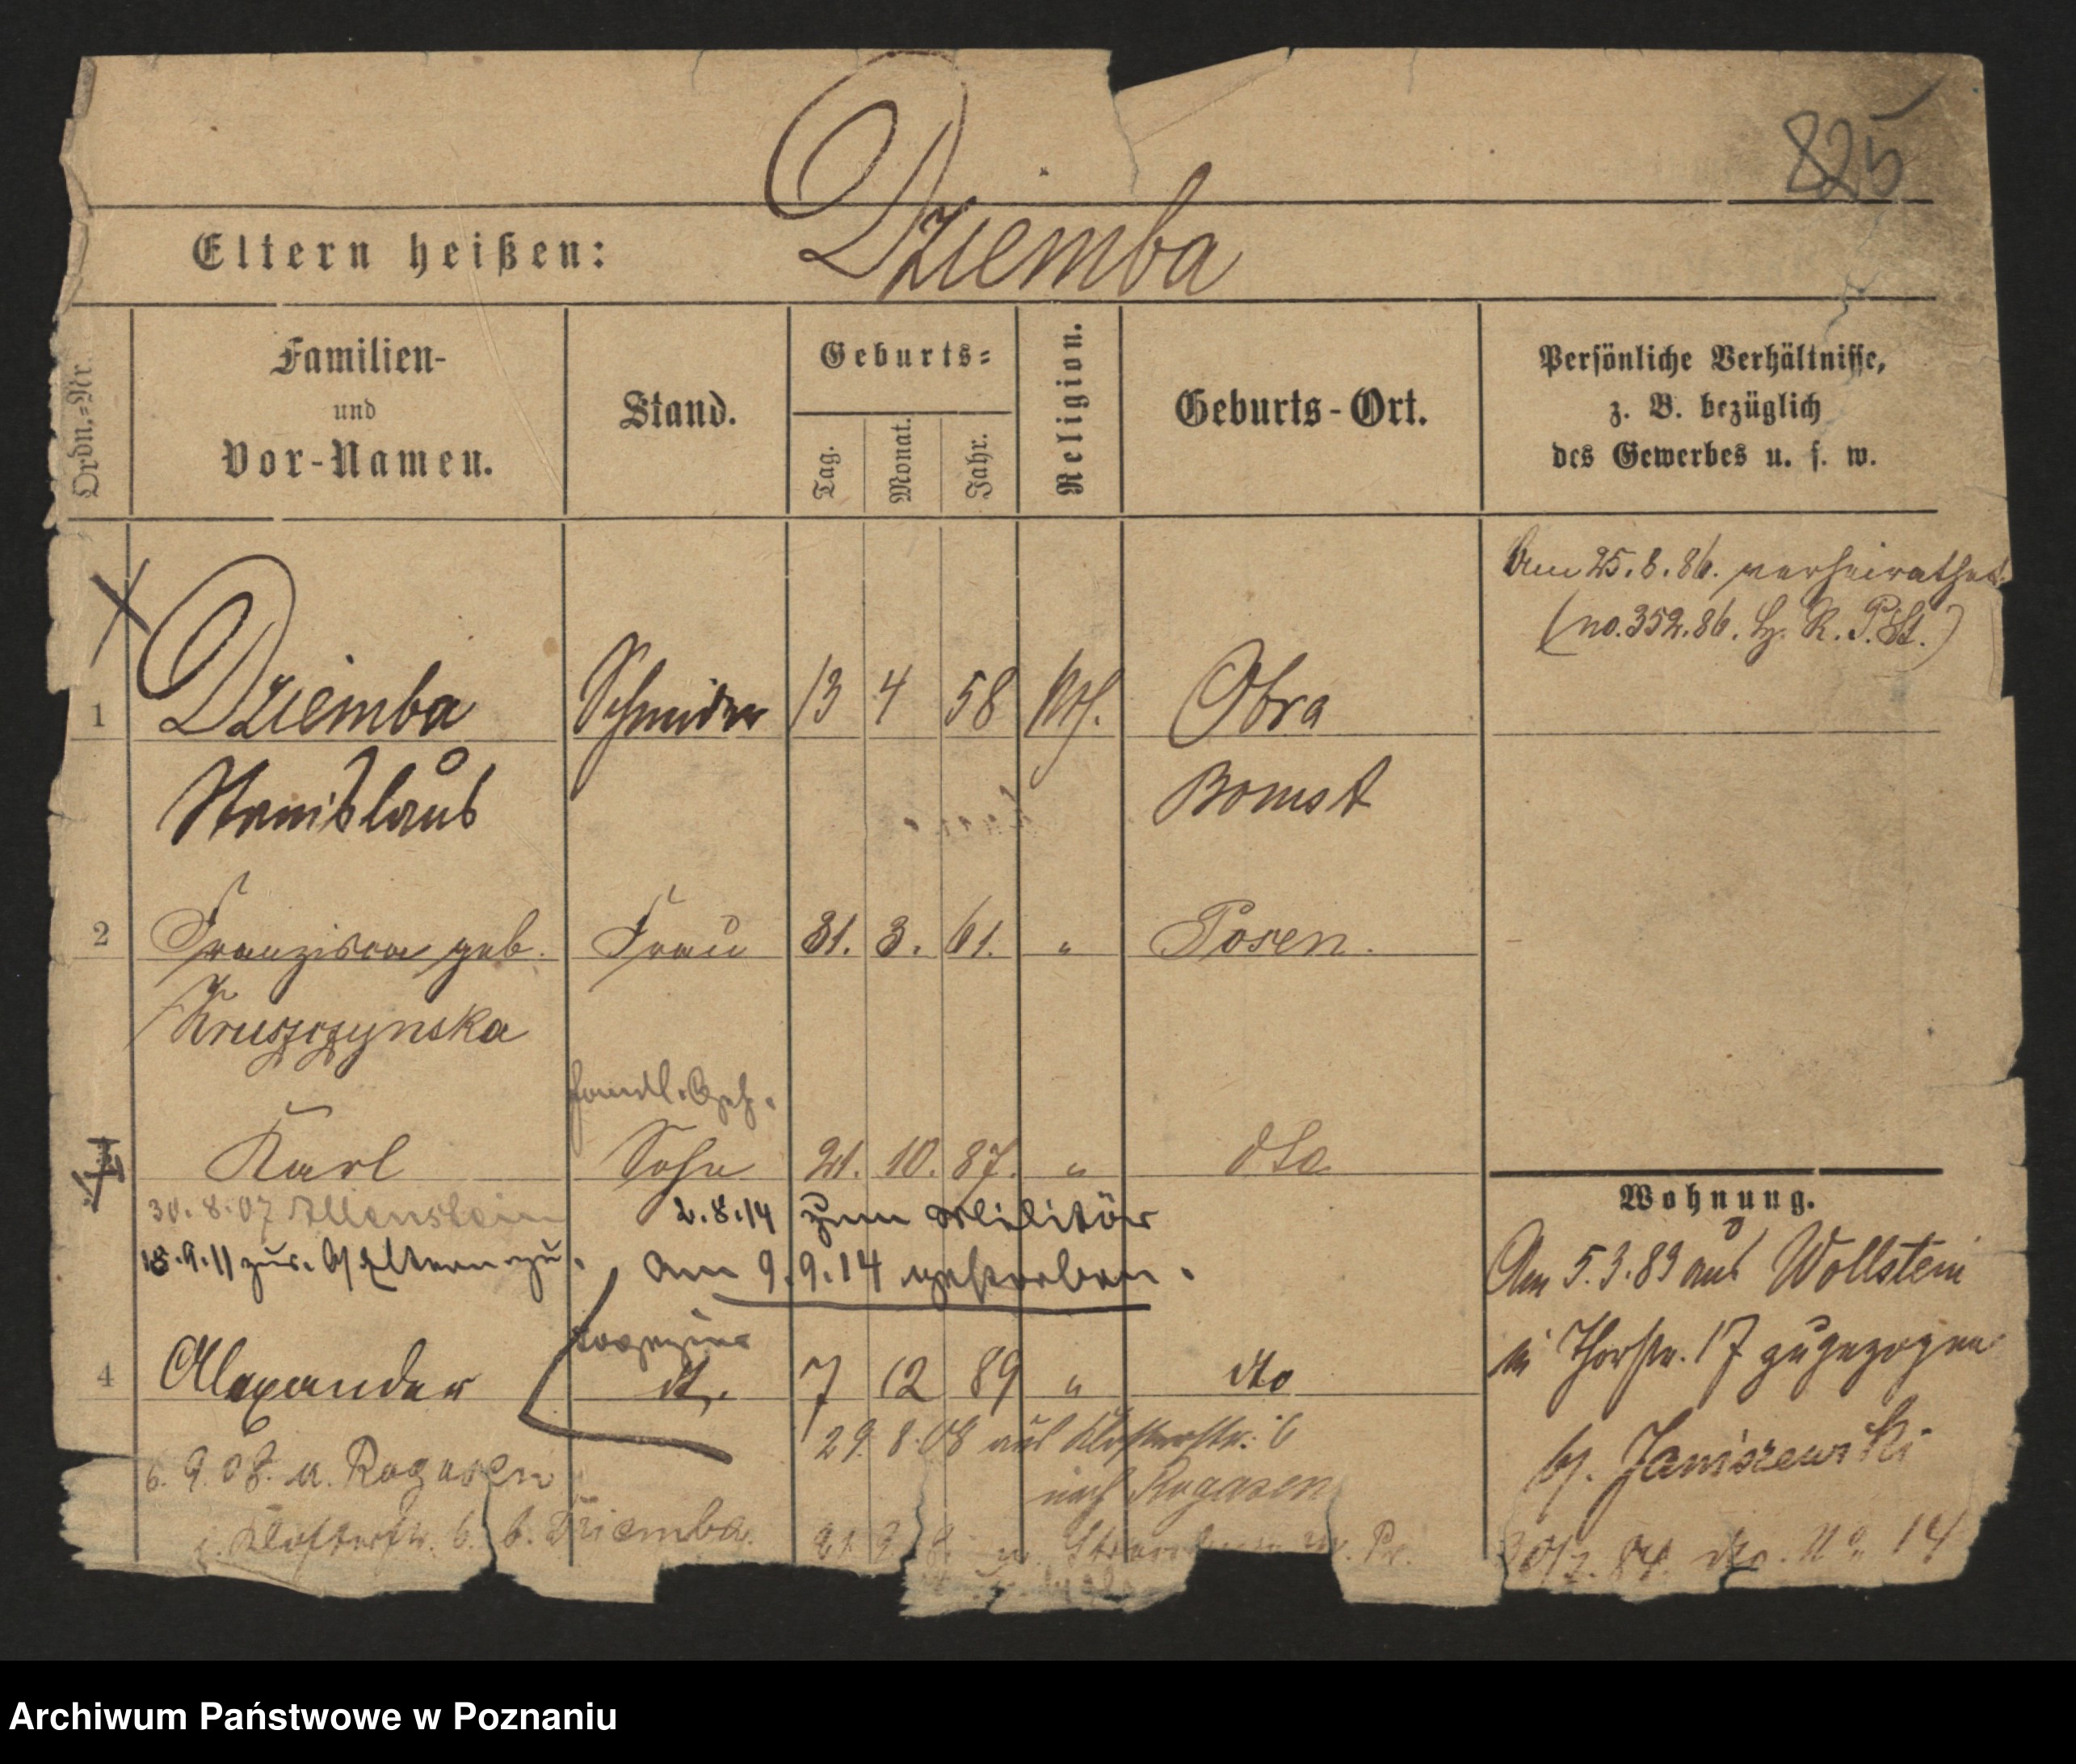 825
Dziemba
Eltern heißen:
Ordn.=Nr.
Familien-
und
Vor-Namen.
Stand.
Geburts=
Tag.
Monat.
Jahr.
Religion.
Geburts-Ort.
Persönliche Verhältnisse,
z. B. bezüglich
des Gewerbes u. s. w.
Am 25.8.86. verheirathet
(no. 352.86. R. P. St.)
1 Dziemba Schneider 13 4 58 kth. Obra
Stanislaus Bomst
2 Franziska geb. Frau 31. 3. 61. " Posen.
Kruszczynska
Handl. Geh.
Karl Sohn 21. 10. 87. " dto
30.8.07 Allenstein 2.8.14 zum Militär
18.9.11 zur. b/ Eltern zu. am 9.9.14 gestorben.
4 Alexander dt. 7 12 89 " dto
29.8.08 aus Klosterstr. 6
6.9.08. a. Rogasen nach Rogasen
i. Klosterstr. 6. b. Dziemba.
W. Pr.
Wohnung.
Am 5.3.83 aus Wollstein
in Thorstr. 17 zugezogen
b/. Janiszewski
84. dto. No 14
Archiwum Państwowe w Poznaniu